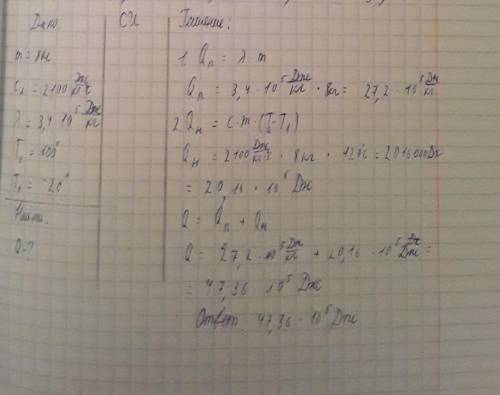 Дано
СИ
Решение:
m = 8кг
c₁ = 2100 Дж/кг°С
λ = 3,4 · 10⁵ Дж/кг
T₂ = 100°
T₁ = -20°
Найти.
Q - ?
1. Qп = λ · m
Qп = 3,4 · 10⁵ Дж/кг · 8кг = 27,2 · 10⁵ Дж/кг
2. Qн = c · m · (T₂-T₁)
Qн = 2100 Дж/кг°С · 8кг · 120°С = 2016000Дж
= 20,16 · 10⁵ Дж
Q = Qп + Qн
Q = 27,2 · 10⁵ Дж/кг + 20,16 · 10⁵ Дж =
= 47,36 · 10⁵ Дж
Ответ. 47,36 · 10⁵ Дж